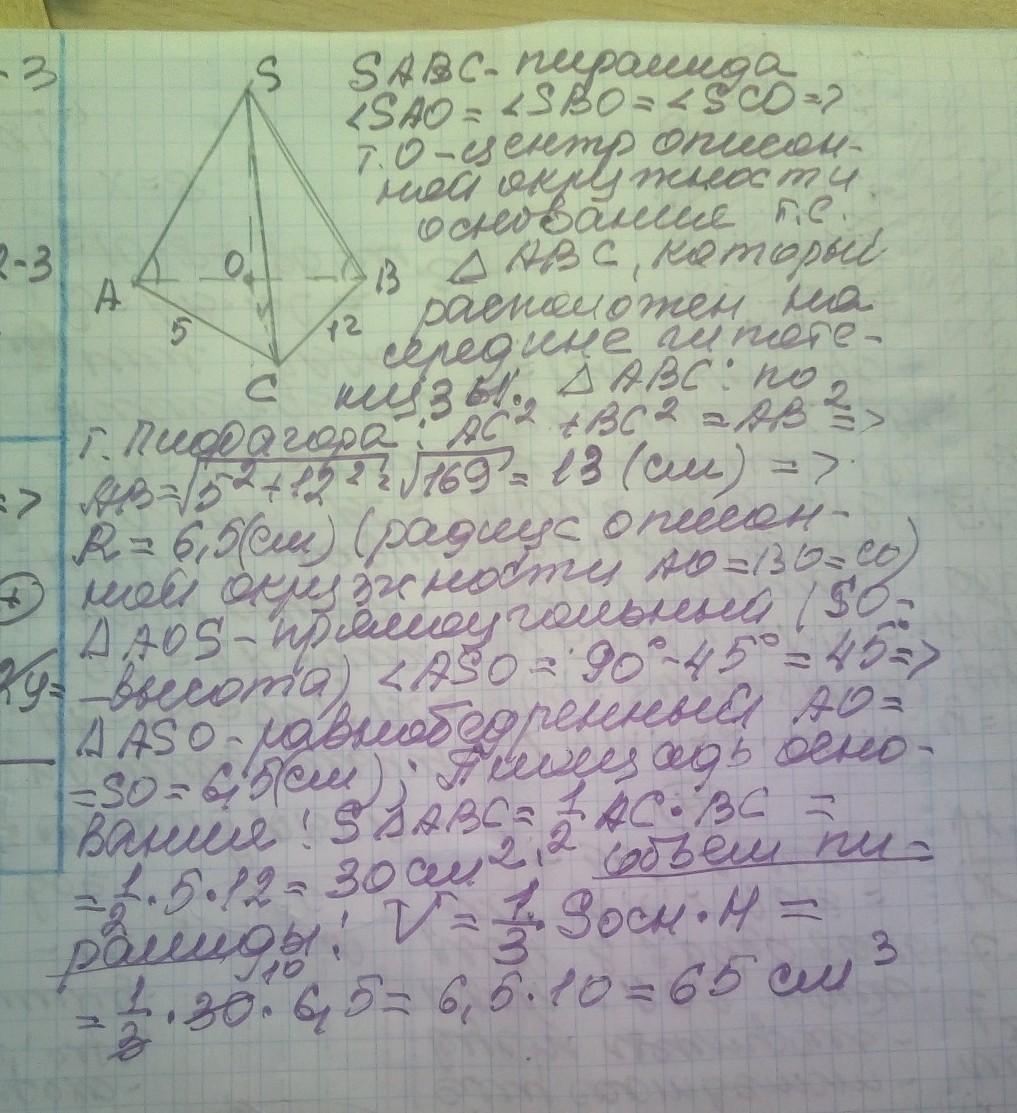 -3
S
SABC - пирамида
∠SAO = ∠SBO = ∠SCO =>
т. О - центр описан-
ной окружности
основания т.е.
2-3
A
O
B
△ ABC, который
5
12
расположен на
середине гипоте-
C
нузы. △ ABC: по
т. Пифагора: AC² + BC² = AB² =>
=>
AB = √5² + 12² = √169 = 13 (см) =>
R = 6,5(см) (радиус описан-
ной окружности AO = BO = CO)
△ AOS - прямоугольный (SO -
- высота) ∠ASO = 90° - 45° = 45° =>
△ ASO - равнобедренный AO =
= SO = 6,5(см); Площадь осно-
вания: S△ABC = 1/2 AC · BC =
= 1/2 · 5 · 12 = 30 см². объем пи-
рамиды: V = 1/3 · Sосн · H =
= 1/3 · 30 · 6,5 = 6,5 · 10 = 65 см³
10